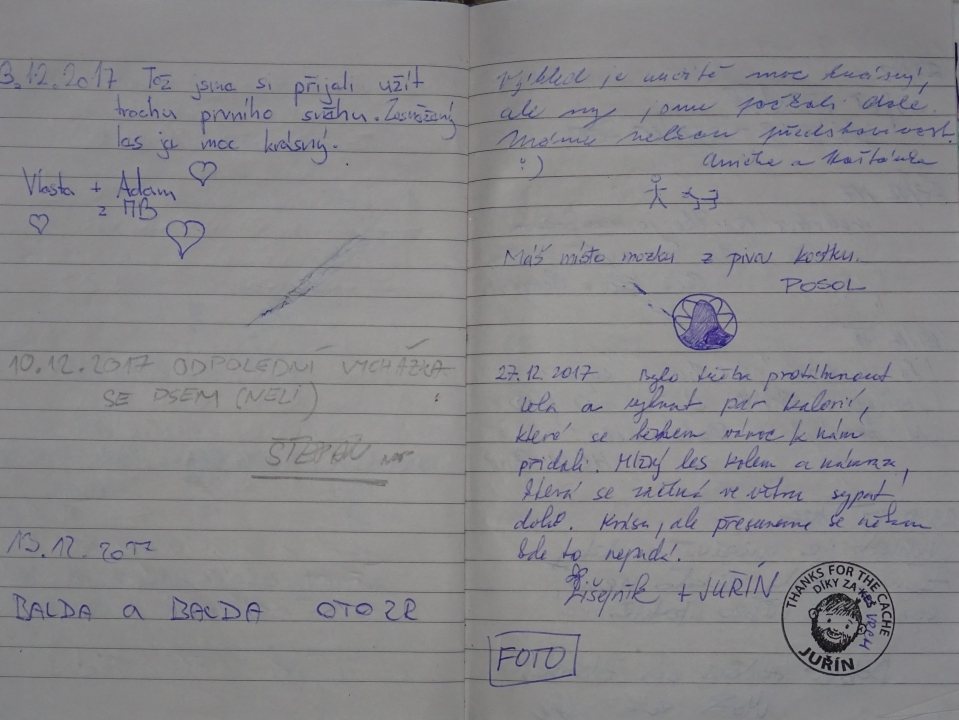 3.12.2017 Tož jsme si přijali užít
trochu prvního sněhu. Zasněžený
les je moc krásný.
Vlasta + Adam
z PB
10.12.2017 ODPOLEDNÍ VYCHÁZKA
SE PSEM (NELI)
ŠTEPAN
13.12.2017
BALDA a BALDA OTO ZR
Výhled je určitě moc krásný,
ale my jsme počkali dole.
Máme velkou představivost.
:)
Máš místo mozku z piva kostku.
POSOL
27.12.2017 Bylo třeba protáhnout
těla a vyhnat pár kalorií,
které se během vánoc k nám
přidali. Mlžný les kolem a námraza,
která se začíná ve větru sypat
dolů. Krása, ale přesuneme se někam
kde to nepadá.
Lišejník + JUŘÍN
FOTO
THANKS FOR THE CACHE
DÍKY ZA KEŠ
JUŘÍN